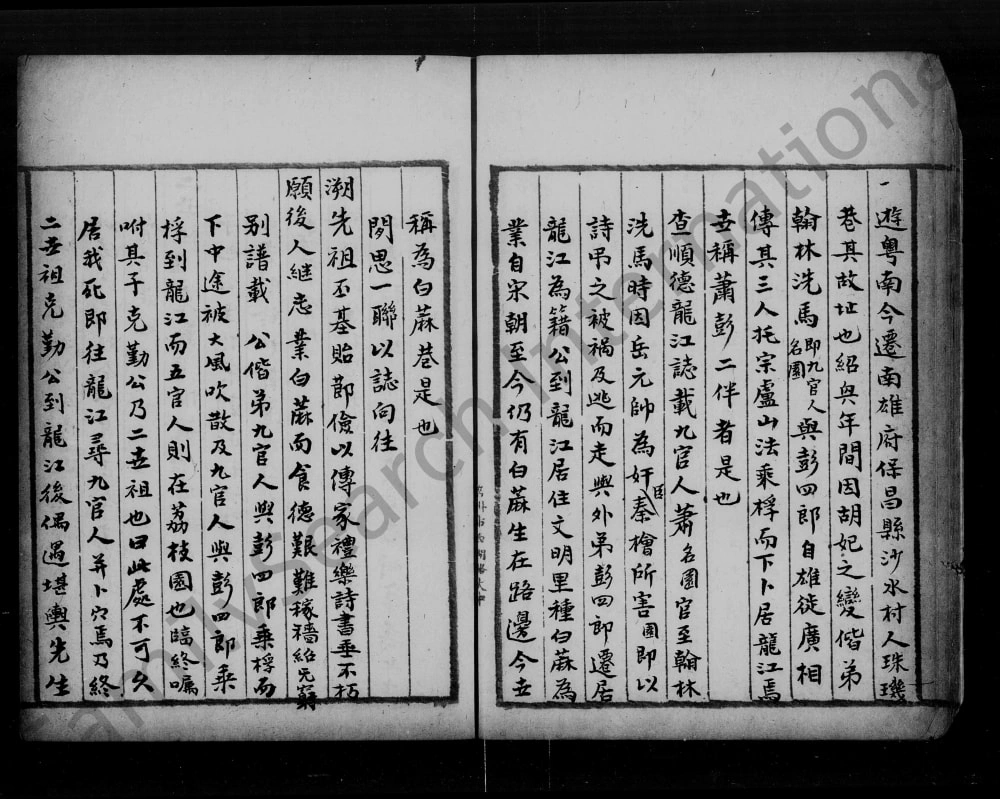 一遊粤南今遷南雄府保昌縣沙水村人珠璣
巷其故址也紹興年間因胡妃之變偕弟
翰林洗馬即九官人名園與彭四郎自雄徙廣相
傳其三人托宗盧山法乘桴而下卜居龍江焉
世稱蕭彭二伴者是也
查順德龍江誌載九官人蕭名園官至翰林
洗馬時因岳元帥為奸臣秦檜所害園即以
詩弔之被禍及逃而走與外弟彭四郎遷居
龍江為籍公到龍江居住文明里種白蔴為
業自宋朝至今仍有白蔴生在路邊今世
稱為白蔴巷是也
閱思一聯以誌向往
溯先祖丕基貽節儉以傳家禮樂詩書垂不朽
願後人継志業白蔴而食德艱難稼穡紹无窮
别譜載 公偕弟九官人與彭四郎乘桴而
下中途被大風吹散及九官人與彭四郎乘
桴到龍江而五官人則在荔枝園也臨終囑
咐其子克勤公乃二世祖也曰此處不可久
居我死即往龍江尋九官人并卜穴焉乃終
二世祖克勤公到龍江後偶遇堪輿先生
FamilySearch International